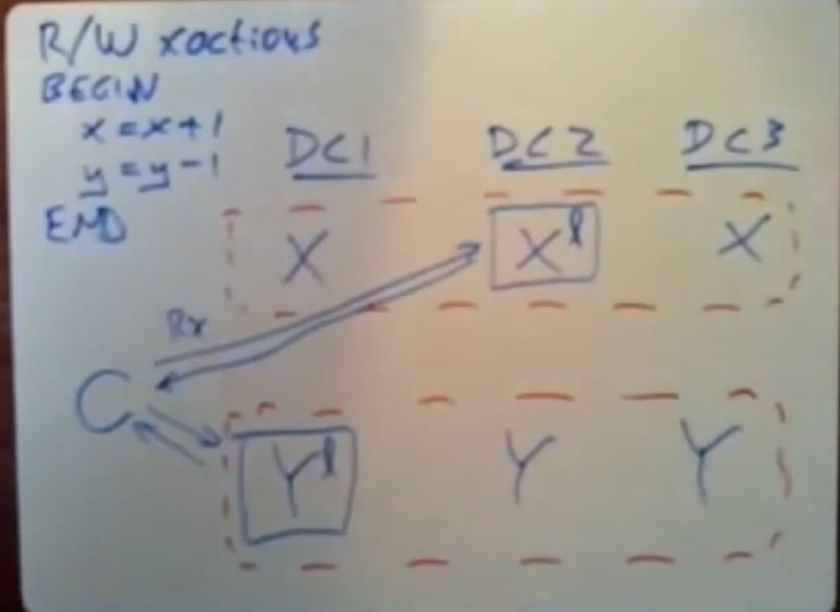 R/W xactions
BEGIN
x = x + 1
y = y - 1
END
DC1 DC2 DC3
X Xˡ X
Rx
C
Yˡ Y Y